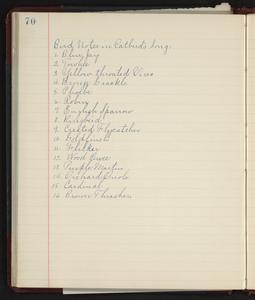 70
Bird Notes in Catbird's Song:
1. Blue Jay
2. Towhee
3. Yellow throated Vireo
4. Bronzed Grackle
5. Phoebe
6. Robin
7. English Sparrow
8. Kingbird
9. Crested Flycatcher
10. Goldfinch
11. Flicker
12. Wood Pewee
13. Purple Martin
14. Orchard Oriole
15. Cardinal
16. Brown Thrasher